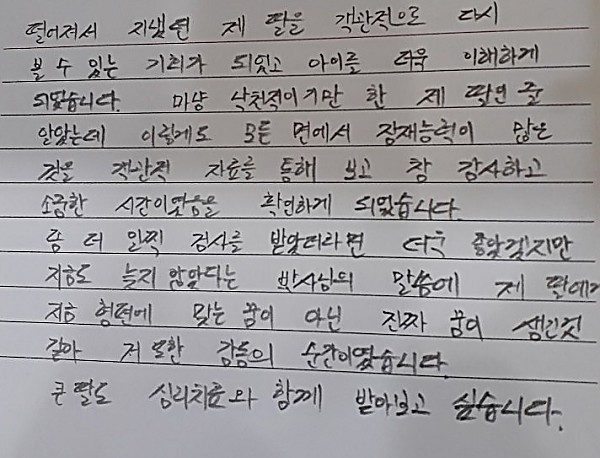 떨어져서 지냈던 제 딸을 객관적으로 다시
볼 수 있는 기회가 되었고 아이를 더욱 이해하게
되었습니다. 마냥 낙천적이기만 한 제 딸인 줄
알았는데 이렇게도 모든 면에서 잠재능력이 많은
것을 객관적 자료를 통해 보고 참 감사하고
소중한 시간이였음을 확인하게 되었습니다.
좀 더 일찍 검사를 받았더라면 더욱 좋았겠지만
지금도 늦지 않았다는 박사님의 말씀에 제 딸에게
지금 형편에 맞는 꿈이 아닌 진짜 꿈이 생긴것
같아 저 또한 감동의 순간이였습니다.
큰 딸도 심리치료와 함께 받아보고 싶습니다.